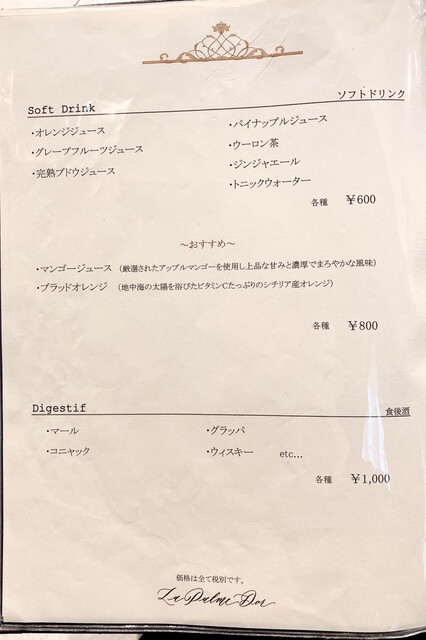 Soft Drink
ソフトドリンク
・オレンジジュース
・グレープフルーツジュース
・完熟ブドウジュース
・パイナップルジュース
・ウーロン茶
・ジンジャエール
・トニックウォーター
各種 ￥600
～おすすめ～
・マンゴージュース （厳選されたアップルマンゴーを使用し上品な甘みと濃厚でまろやかな風味）
・ブラッドオレンジ （地中海の太陽を浴びたビタミンCたっぷりのシチリア産オレンジ）
各種 ￥800
Digestif
食後酒
・マール
・コニャック
・グラッパ
・ウィスキー etc...
各種 ￥1,000
価格は全て税別です。
La Palme D'or